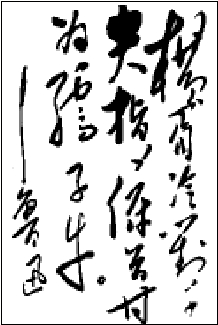 横眉冷對千
夫指,俯首甘
為孺子牛。
—魯迅